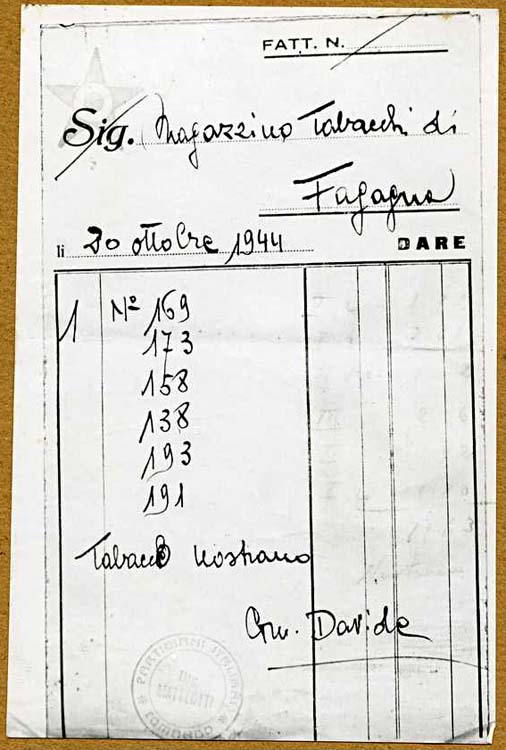 FATT. N.
Sig. Magazzino Tabacchi di
Fagagna
li 30 ottobre 1944 DARE
1 Nº 169
173
158
138
193
191
Tabacco nostrano
Davide
MATTEOTTI
COMANDO